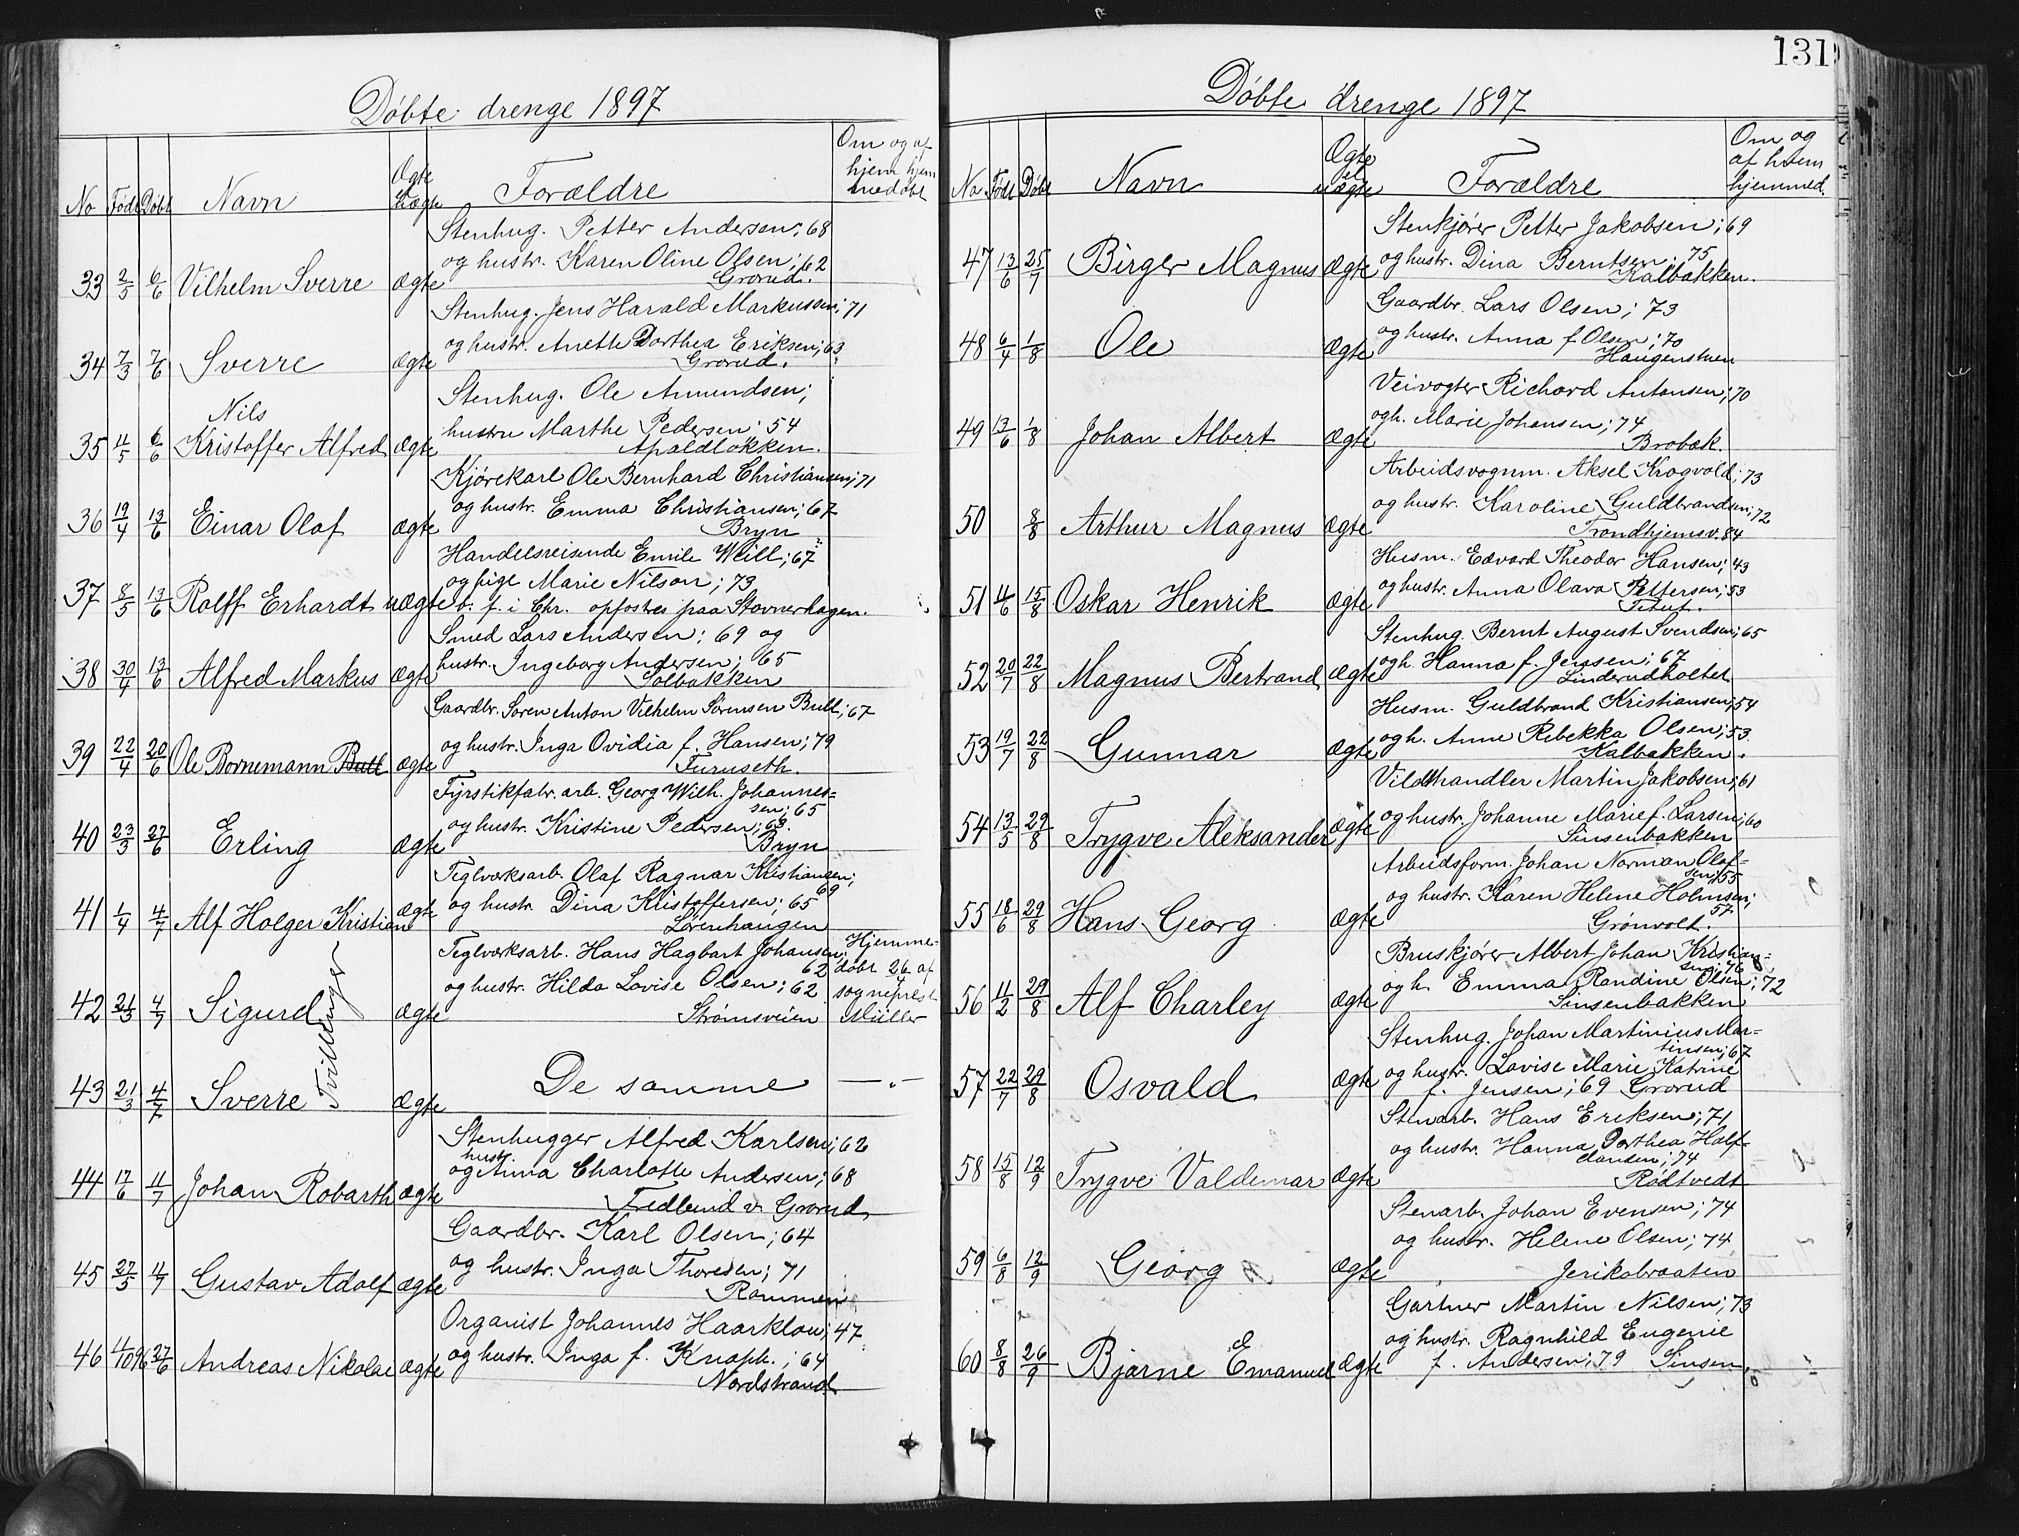 131
Døbte drenge 1897
No Født Døbt Navn Ægte el. uægte Forældre Om og af hvem hjemmedøbt
Stenhug. Petter Andersen; 68
og hustr. Karen Oline Olsen; 62
33 2/5 6/6 Vilhelm Sverre Ægte Grorud.
Stenhug. Jens Harald Markussen; 71
og hustr. Anette Dorthea Eriksen; 63
34 7/3 7/6 Sverre Ægte Grorud.
Stenhug. Ole Amundsen;
Nils
hustru Marthe Pedersen; 54
35 4/5 6/6 Kristoffer Alfred Ægte Apaldløkken.
Kjørekarl Ole Bernhard Christiansen; 71
og hustr. Emma Christiansen; 67
36 19/4 13/6 Einar Olaf Ægte Bryn
Handelsreisende Emile Weill; 67
og pige Marie Nilson; 73
37 8/5 13/6 Rolff Erhardt uægte b. f. i Chr. opfostres paa Stovnerhagen.
Smed Lars Andersen; 69 og
hustr. Ingeborg Andersen; 65
38 30/4 13/6 Alfred Markus Ægte Solbakken
Gaardbr. Søren Anton Vilhelm Sørensen Bull; 67
og hustr. Inga Ovidia f. Hansen; 79
39 22/4 20/6 Ole Bornemann Bull Ægte Furuseth.
Fyrstikfabr. arb. Georg Wilh. Johannes=
sen; 65
og hustr. Kristine Pedersen; 63.
40 23/3 27/6 Erling Ægte Bryn
Teglværksarb. Olaf Ragnar Kristiansen;
69
og hustr. Dina Kristoffersen; 65
41 1/4 4/7 Alf Holger Kristian Ægte Lørenhaugen
Teglværksarb. Hans Hagbart Johansen; Hjemme-
62 døbt 26 af
og hustr. Hilda Lovise Olsen; 62 sogneprest
42 21/3 4/7 Sigurd Ægte Strømsveien Müller
Tvillinger
43 21/3 4/7 Sverre Ægte De samme —"—
Stenhugger Alfred Karlsen; 62
hust.
og Anna Charlotte Andersen; 68
44 17/6 11/7 Johan Robarth Ægte Fredlund v. Grorud
Gaardbr. Karl Olsen; 64
og hustr. Inga Thoresen; 71
45 27/5 11/7 Gustav Adolf Ægte Rommen
Organist Johannes Haarklou; 47
og hustr. Inga f. Knoph.; 64
46 4/10 96 27/6 Andreas Nikolai Ægte Nordstrand
Døbte drenge 1897
No Født Døbt Navn Ægte el. uægte Forældre Om og af hvem hjemmed.
Stenkjører Petter Jakobsen; 69
og hustr. Dina Berntsen; 75
47 13/6 25/7 Birger Magnus Ægte Kalbakken.
Gaardbr. Lars Olsen; 73
og hustr. Anna f. Olsen; 70
48 6/4 1/8 Ole Ægte Haugenstuen
Veivogter Richard Antonsen; 70
ogh. Marie Johansen; 74
49 17/6 1/8 Johan Albert Ægte Brobæk.
Arbeidsvognm. Aksel Krogvold; 73
og hustr. Karoline Guldbrandsen; 72
50 8/8 Arthur Magnus Ægte Trondhjemsv. 84
Husm. Edvard Theodor Hansen; 43
og hustr. Anna Olava Pettersen; 53
51 4/6 15/8 Oskar Henrik Ægte
Stenhug. Bernt August Svendsen; 65
ogh. Hanna f. Jensen; 67
52 20/7 22/8 Magnus Bertrand Ægte Linderudholtet
Husm. Guldbrand Kristiansen; 54
ogh. Anne Rebekka Olsen; 53
53 19/7 22/8 Gunnar Ægte Kalbakken.
Vildthandler Martin Jakobsen; 61
og hustr. Johanne Marie f. Larsen; 60
54 13/5 29/8 Trygve Aleksander Ægte Sinsenbakken
Arbeidsform. Johan Norman Olaf=
sen; 55
og hustr. Karen Helene Holmsen;
57
55 18/6 29/8 Hans Georg Ægte Grønvolt.
Bruskjører Albert Johan Kristian=
sen; 76
ogh. Emma Randine Olsen; 72
56 11/2 29/8 Alf Charley Ægte Sinsenbakken
Stenhug. Johan Martinius Mar=
tinsen; 67
og hustr. Lovise Marie Katrine
57 22/7 29/8 Osvald Ægte f. Jensen; 69 Grorud
Stenarb. Hans Eriksen; 71
og hustr. Hanna Dorthea Half=
dansen; 74
58 15/8 12/9 Trygve Valdemar Ægte Rødtvedt
Stenarb. Johan Evensen; 74
og hustr. Helene Olsen; 74
59 6/8 12/9 Georg Ægte Jerikobraaten
Gartner Martin Nilsen; 73
og hustr. Ragnhild Eugenie
60 8/8 26/9 Bjarne Emanuel Ægte f. Andersen; 79 Sinsen.